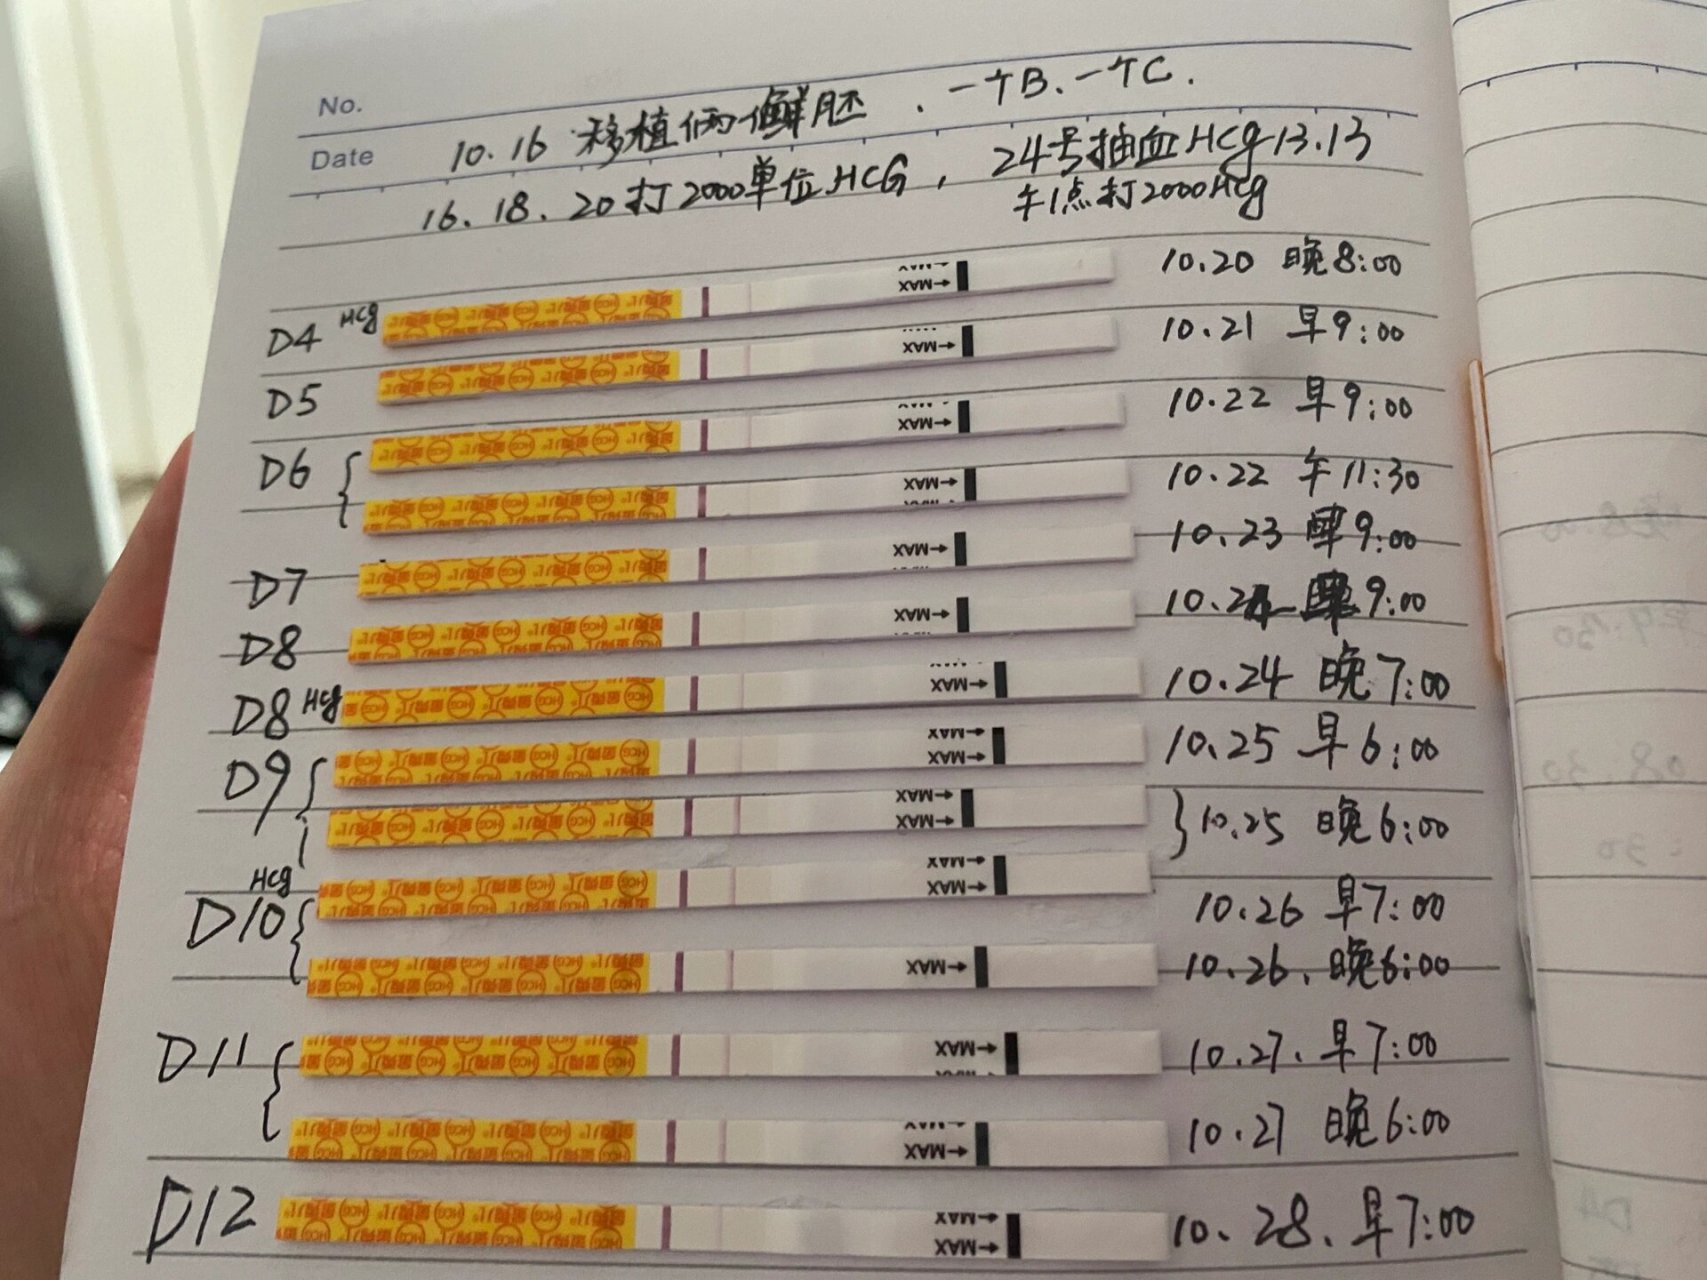 No.
Date
10.16 移植俩个鲜胚．一个B．一个C．
16．18．20打2000单位HCG，24号抽血HCg13.13
午1点打2000HCg
D4 HCg MAX 10.20 晚8:00
D5 MAX 10.21 早9:00
D6 MAX 10.22 早9:00
MAX 10.22 午11:30
D7 MAX 10.23 早9:00
D8 MAX 10.24 早9:00
D8 HCg MAX 10.24 晚7:00
D9 MAX MAX 10.25 早6:00
MAX MAX 10.25 晚6:00
HCg
D10 MAX MAX 10.26 早7:00
MAX 10.26．晚6:00
D11 MAX 10.27．早7:00
MAX MAX 10.27 晚6:00
D12 MAX MAX 10.28．早7:00